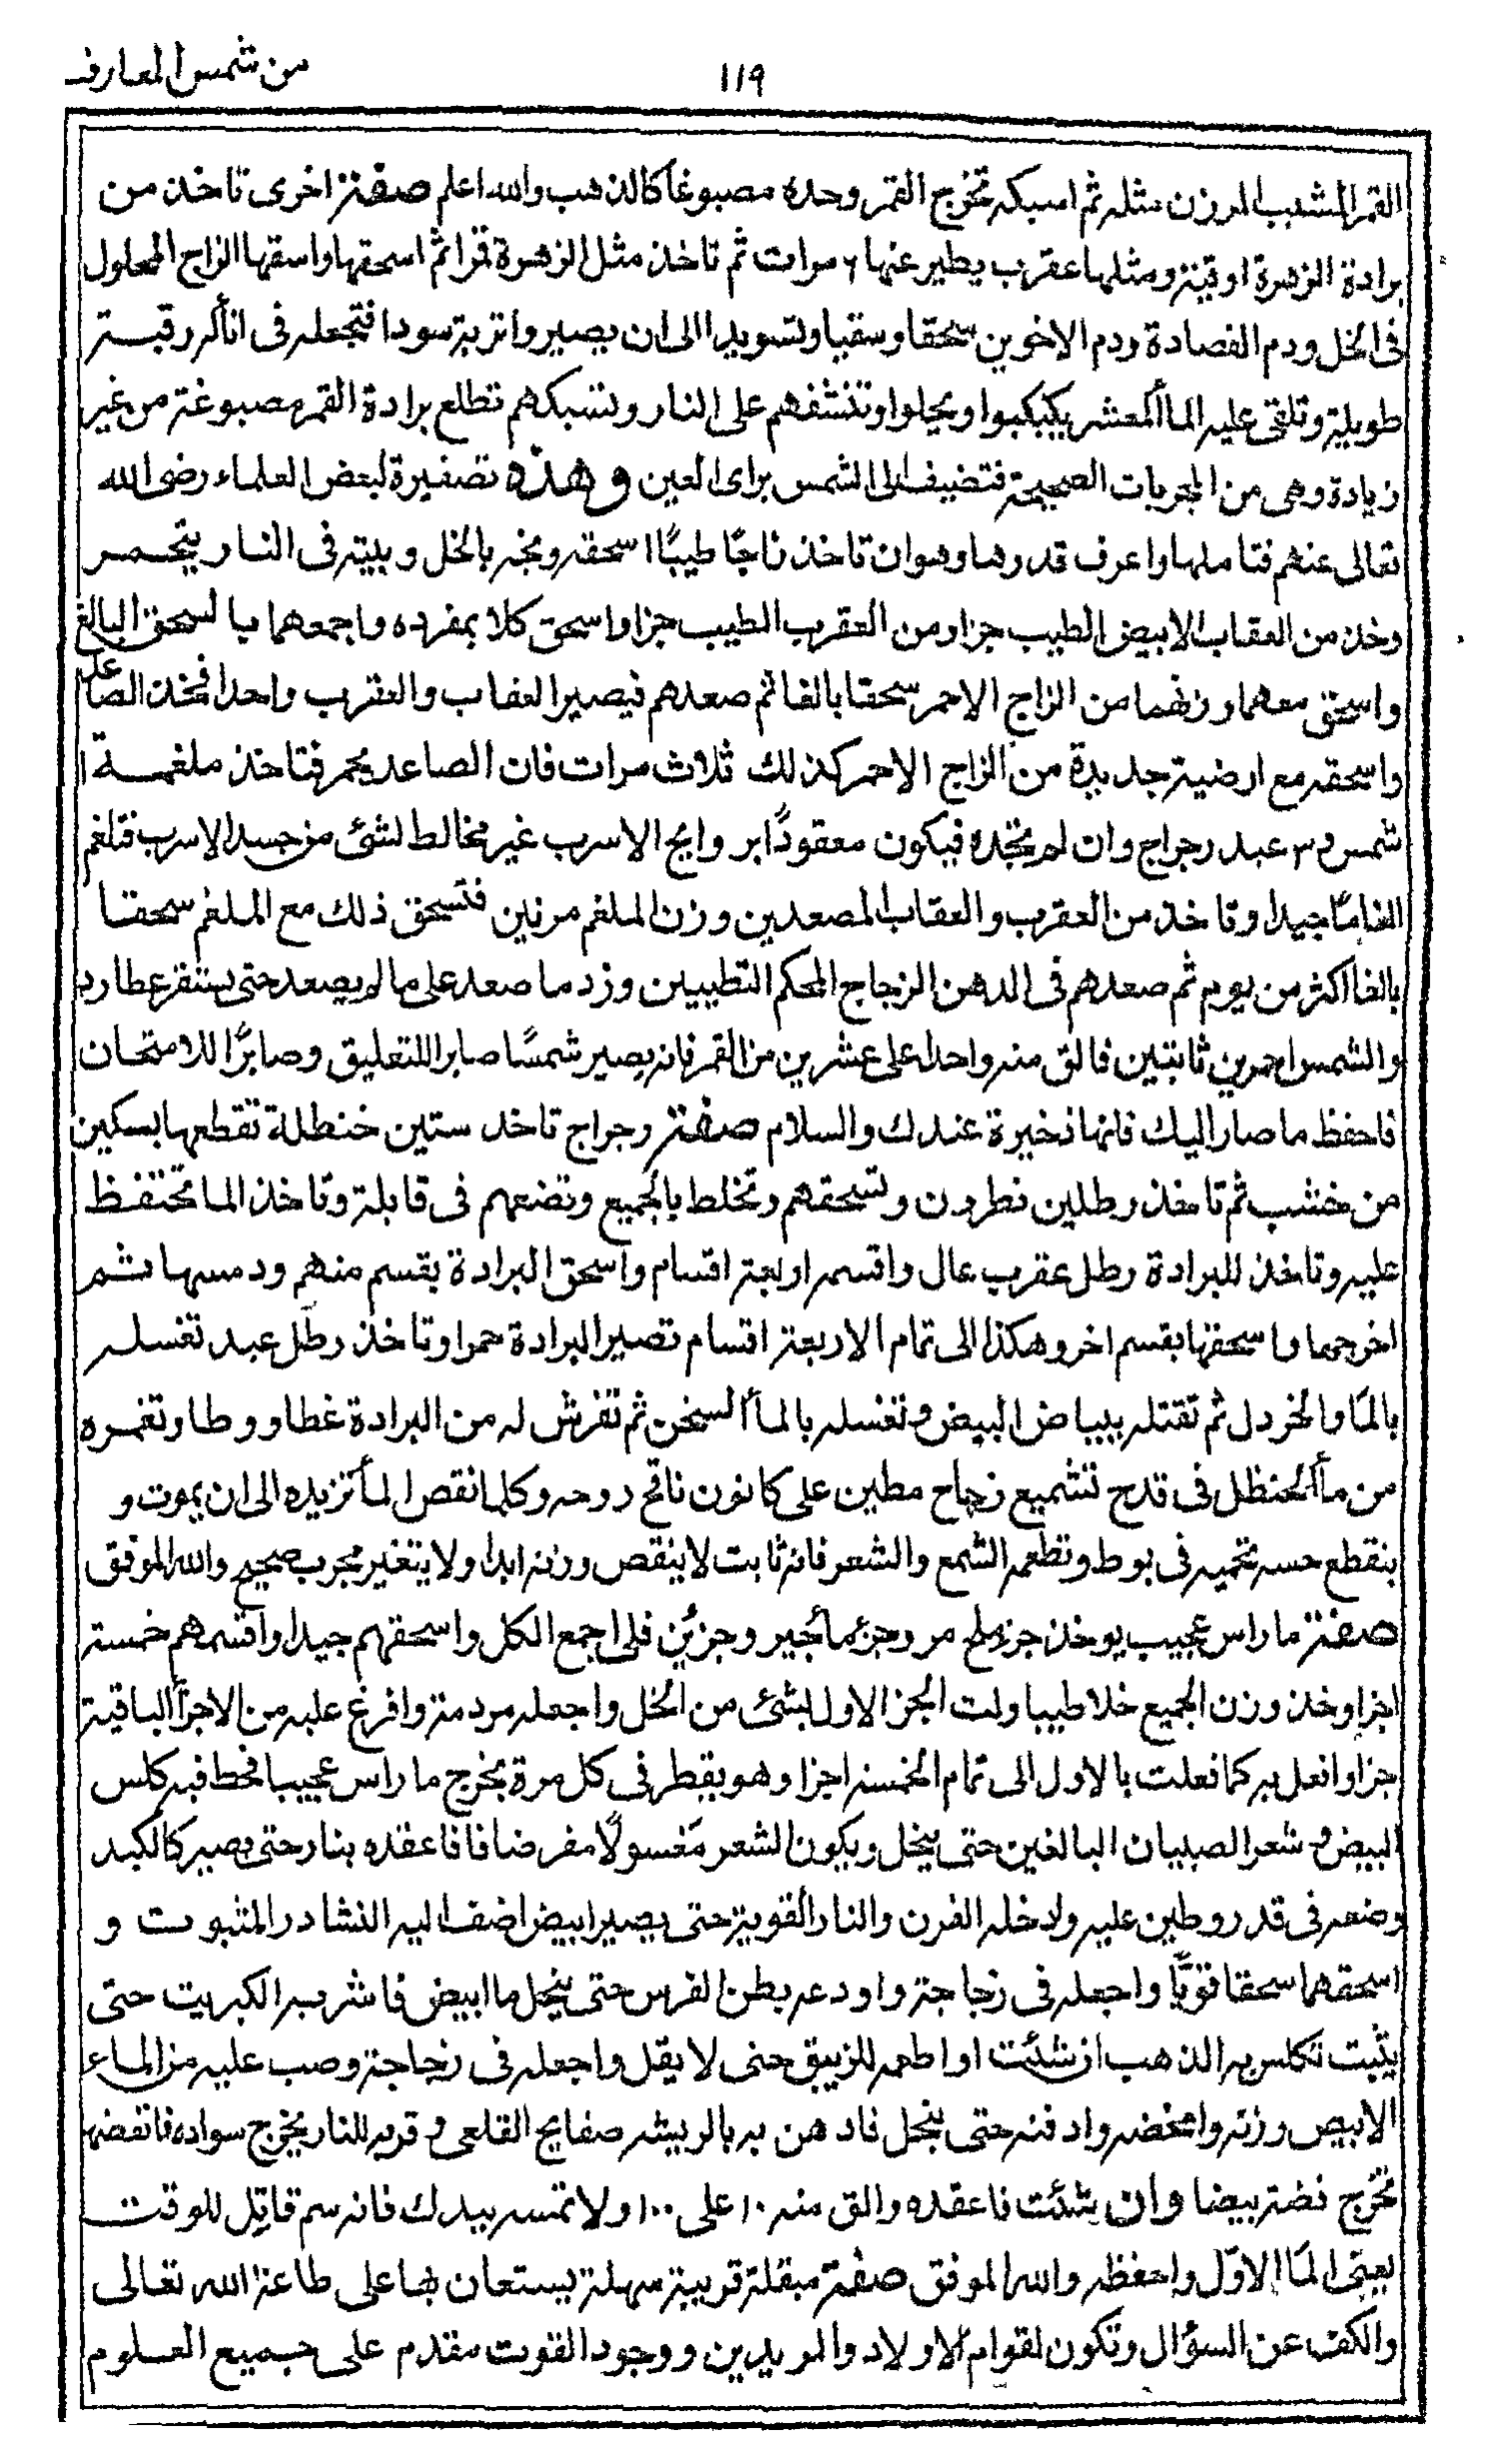 من شمس المعارف
١١٩
القمر المشبب المرزن مثله ثم اسبكه تخرج القمر وحده مصبوغا كالذهب والله اعلم صفة اخرى تاخذ من
برادة الزهرة اوقية ومثلها عقرب يطير عنها ٦ مرات ثم تاخذ مثل الزهرة قمرا ثم اسحقها واسقها الزاج المحلول
فى الخل ودم الفصادة ودم الاخوين سحقا وسقيا وتسويدا الى ان يصيروا تربة سودا فتجعله فى انا له رقبة
طويلة وتلقى عليه الما المعشر يكبكبوا ويحلوا وتنشفهم على النار وتسبكهم تطلع برادة القمر مصبوغة من غير
زيادة وهى من المجربات الصحيحة فتضيف الى الشمس براى العين وهذه تصفيرة لبعض العلماء رضى الله
تعالى عنهم فتاملها واعرف قدرها وهو ان تاخذ زاجًا طيبًا اسحقه وبخه بالخل وبيته فى النار يتحمر
وخذ من العقاب الابيض الطيب جزا ومن العقرب الطيب جزا واسحق كلا بمفرده واجمعهما با لسحق البالغ
واسحق معهما وزنهما من الزاج الاحمر سحقا بالغا ثم صعدهم فيصير العقاب والعقرب واحدا فخذ الصاعد
واسحقه مع ارضية جديدة من الزاج الاحمر كذلك ثلاث مرات فان الصاعد يحمر فتاخذ ملغمة ١
شمس و٣ عبد رجراج وان لم تجده فيكون معقودًا بروايح الاسرب غير مخالط لشئ من جسد الاسرب فتلغم
الغامًا جيدا وتاخذ من العقرب والعقاب المصعدين وزن الملغم مرتين فتسحق ذلك مع الملغم سحقا
بالغا اكثر من يوم ثم صعدهم فى الدهن الزجاج المحكم التطيين وزد ما صعد على ما لم يصعد حتى يستقر عطارد
والشمس احمرين ثابتين فالق منه واحدا على عشرين من القمر فانه يصير شمسًا صابرا للتعليق وصابرًا للامتحان
فاحفظ ما صار اليك فانها ذخيرة عندك والسلام صفة رجراج تاخد ستين حنظلة تقطعها بسكين
من خشب ثم تاخذ رطلين نطرون وتسحقهم وتخلط بالجميع وتضعهم فى قابلة وتاخذ الما تحتفظ
عليه وتاخذ للبرادة رطل عقرب عال واقسمه اربعة اقسام واسحق البرادة بقسم منهم ودمسها ثم
اخرجها واسحقها بقسم اخر وهكذا الى تمام الاربعة اقسام تصير البرادة حمرا وتاخذ رطل عبد تغسله
بالما والخردل ثم تقتله ببياض البيض وتغسله بالما السخن ثم تفرش له من البرادة غطا ووطا وتغمره
من ما الحنظل فى قدح تشميع زجاج مطين على كانون نافح روحه وكلما نقص الما تزيده الى ان يموت و
ينقطع حسه تحميه فى بوط وتطعمه الشمع والشعر فانه ثابت لا ينقص وزنه ابدا ولا يتغير مجرب صحيح والله الموفق
صفة ما راس عجيب يوخذ جزء ملح مر وجزء ما جير وجزئين قلى اجمع الكل واسحقهم جيدا واقسمهم خمسة
اجزا وخذ وزن الجميع خلا طيبا ولت الجز الاول بشئ من الخل واجعله مردمة وافرغ عليه من الاجزا الباقية
جزا وافعل به كما فعلت بالاول الى تمام الخمسة اجزا وهو يقطر فى كل مرة يخرج ما راس عجيبا فحط فيه كلس
البيض وشعر الصبيان البالغين حتى ينحل ويكون الشعر مغسولًا مقرضا فافا عقده بنار حتى يصير كالكبد
وضعه فى قدر وطين عليه ولدخله الفرن والنار القوية حتى يصير ابيض اضف اليه النشادر المثبوت و
اسحقهما سحقا قويًا واجعله فى زجاجة واودعه بطن الفرس حتى ينحل ما ابيض فاشربه الكبريت حتى
يثبت تكلس به الذهب ان شئت او اطعمه للزيبق حتى لا يقل واجعله فى زجاجة وصب عليه من الماء
الابيض وزنه وامخضه وادفنه حتى ينحل فادهن به بالريشه صفايح القلعى وقربه للنار يخرج سواده فانفضها
تخرج فضة بيضا وان شئت فاعقده والق منه ١٠ على ١٠٠ ولا تمسه بيدك فانه سم قاتل للوقت
يعنى الما الاول واحفظه والله الموفق صفة مبقلة قريبة سهلة يستعان بها على طاعة الله تعالى
والكف عن السؤال وتكون لقوام الاولاد والمريدين ووجود القوت مقدم على جميع العلوم